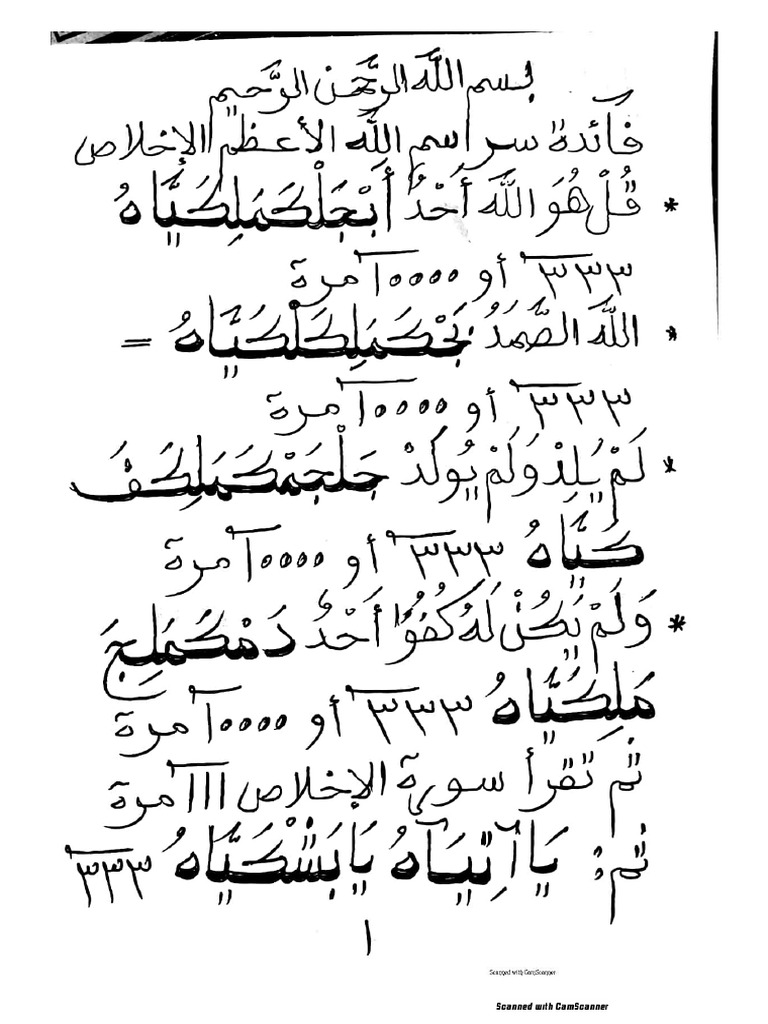 بسم الله الرحمن الرحيم
فائدة سر اسم الله الأعظم الإخلاص
* قُلْ هُوَ اللهُ أَحْدٌ أَبْجَلْكَمَلِكَيَّاهُ
٣٣٣ أو ١٠٠٠٠ مرة
* اللهَ الصَّمَدُ بَجْكَمَلِكَلْكَيَّاهُ =
٣٣٣ أو ١٠٠٠٠ مرة
* لَمْ يَلِدْ وَلَمْ يُولَدْ جَلْجَمْكَمَلِكَفَ
كَيَّاهُ ٣٣٣ أو ١٠٠٠٠ مرة
* وَلَمْ يَكُنْ لَهُ كُفُوًا أَحْدٌ دَمْكَمَلِجَ
مَلِكَيَّاهُ ٣٣٣ أو ١٠٠٠٠ مرة
ثم تقرأ سورة الإخلاص ١١١ مرة
ثم: يَا آنِيَاهُ يَا بَشْكَيَّاهُ ٣٣٣
١
Scanned with CamScanner
Scanned with CamScanner